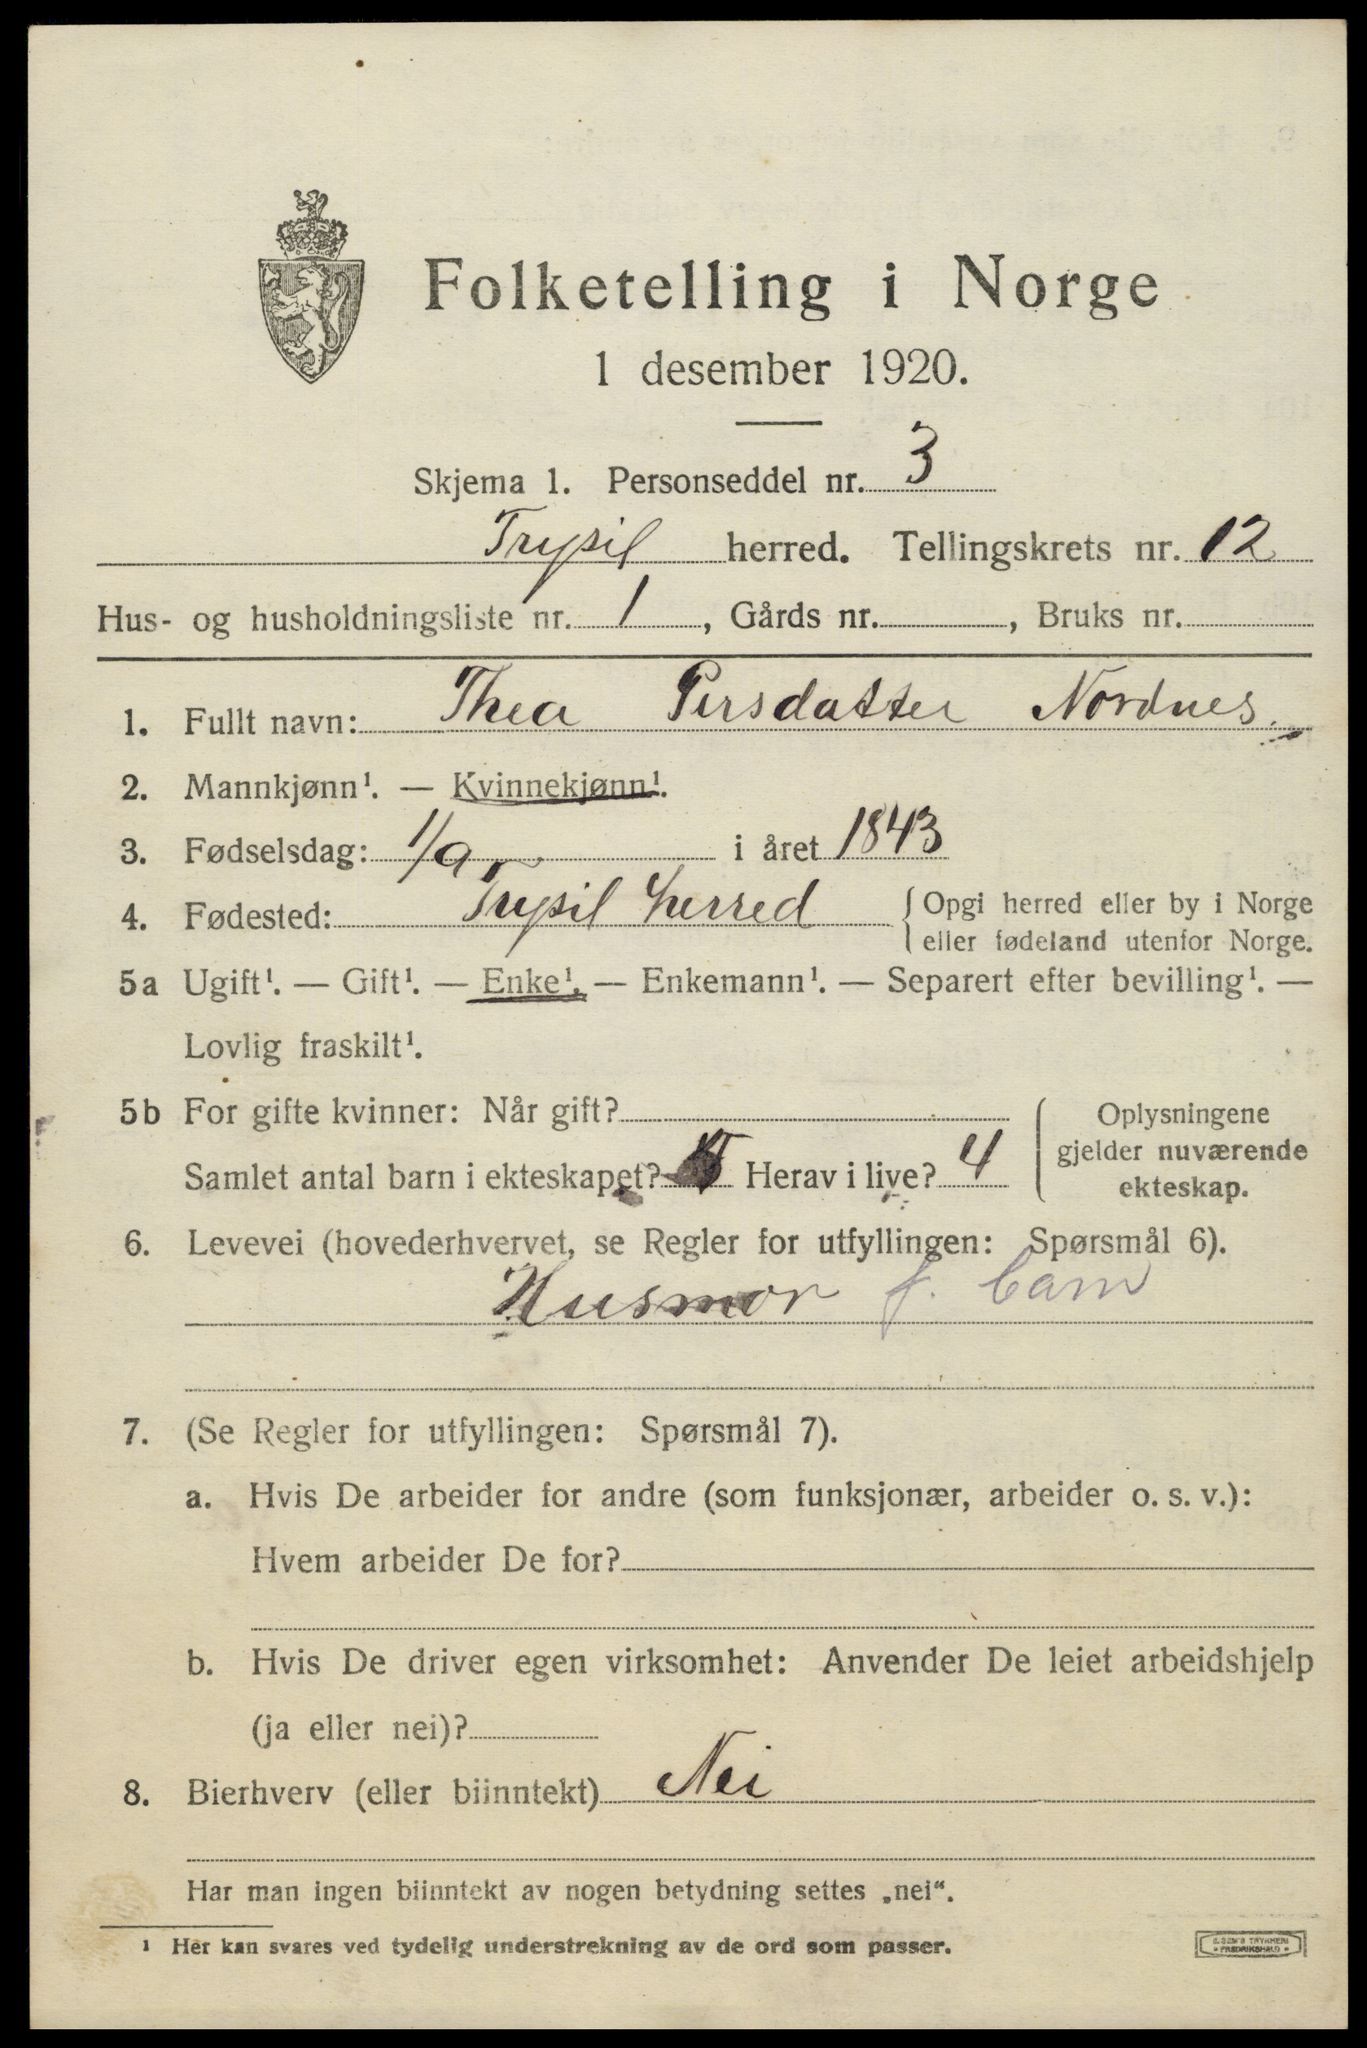 Folketelling i Norge
1 desember 1920.
Skjema 1. Personseddel nr. 3
Trysil herred. Tellingskrets nr. 12
Hus- og husholdningsliste nr. 1, Gårds nr. , Bruks nr.
1. Fullt navn: Thea Persdatter Nordnes.
2. Mannkjønn¹. — Kvinnekjønn¹.
3. Fødselsdag: 1/9 i året 1843
4. Fødested: Trysil herred { Opgi herred eller by i Norge
eller fødeland utenfor Norge.
5a Ugift¹. — Gift¹. — Enke¹. — Enkemann¹. — Separert efter bevilling¹. —
Lovlig fraskilt¹.
5b For gifte kvinner: Når gift? { Oplysningene
gjelder nuværende
ekteskap.
Samlet antal barn i ekteskapet? Herav i live? 4
6. Levevei (hovederhvervet, se Regler for utfyllingen: Spørsmål 6).
Husmor f.
7. (Se Regler for utfyllingen: Spørsmål 7).
a. Hvis De arbeider for andre (som funksjonær, arbeider o. s. v.):
Hvem arbeider De for?
b. Hvis De driver egen virksomhet: Anvender De leiet arbeidshjelp
(ja eller nei)?
8. Bierhverv (eller biinntekt) Nei
Har man ingen biinntekt av nogen betydning settes „nei“.
¹ Her kan svares ved tydelig understrekning av de ord som passer.